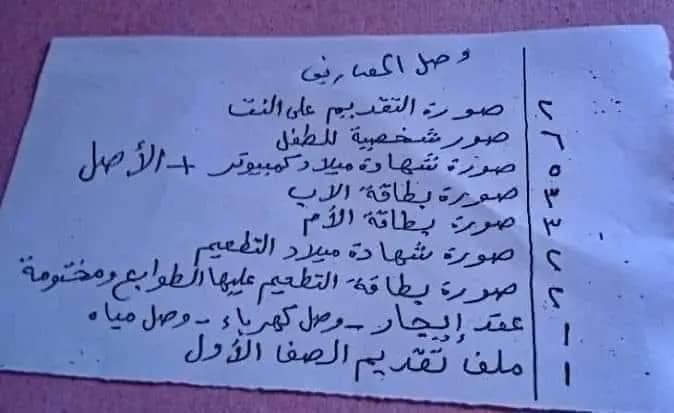 وصل المصاريف
٢ صورة التقديم على النت
٦ صور شخصية للطفل
٥ صورة شهادة ميلاد كمبيوتر + الأصل
٣ صورة بطاقة الاب
٣ صورة بطاقة الأم
٢ صورة شهادة ميلاد التطعيم
٢ صورة بطاقة التطعيم عليها الطوابع ومختومة
١ عقد إيجار - وصل كهرباء - وصل مياه
١ ملف تقديم الصف الأول